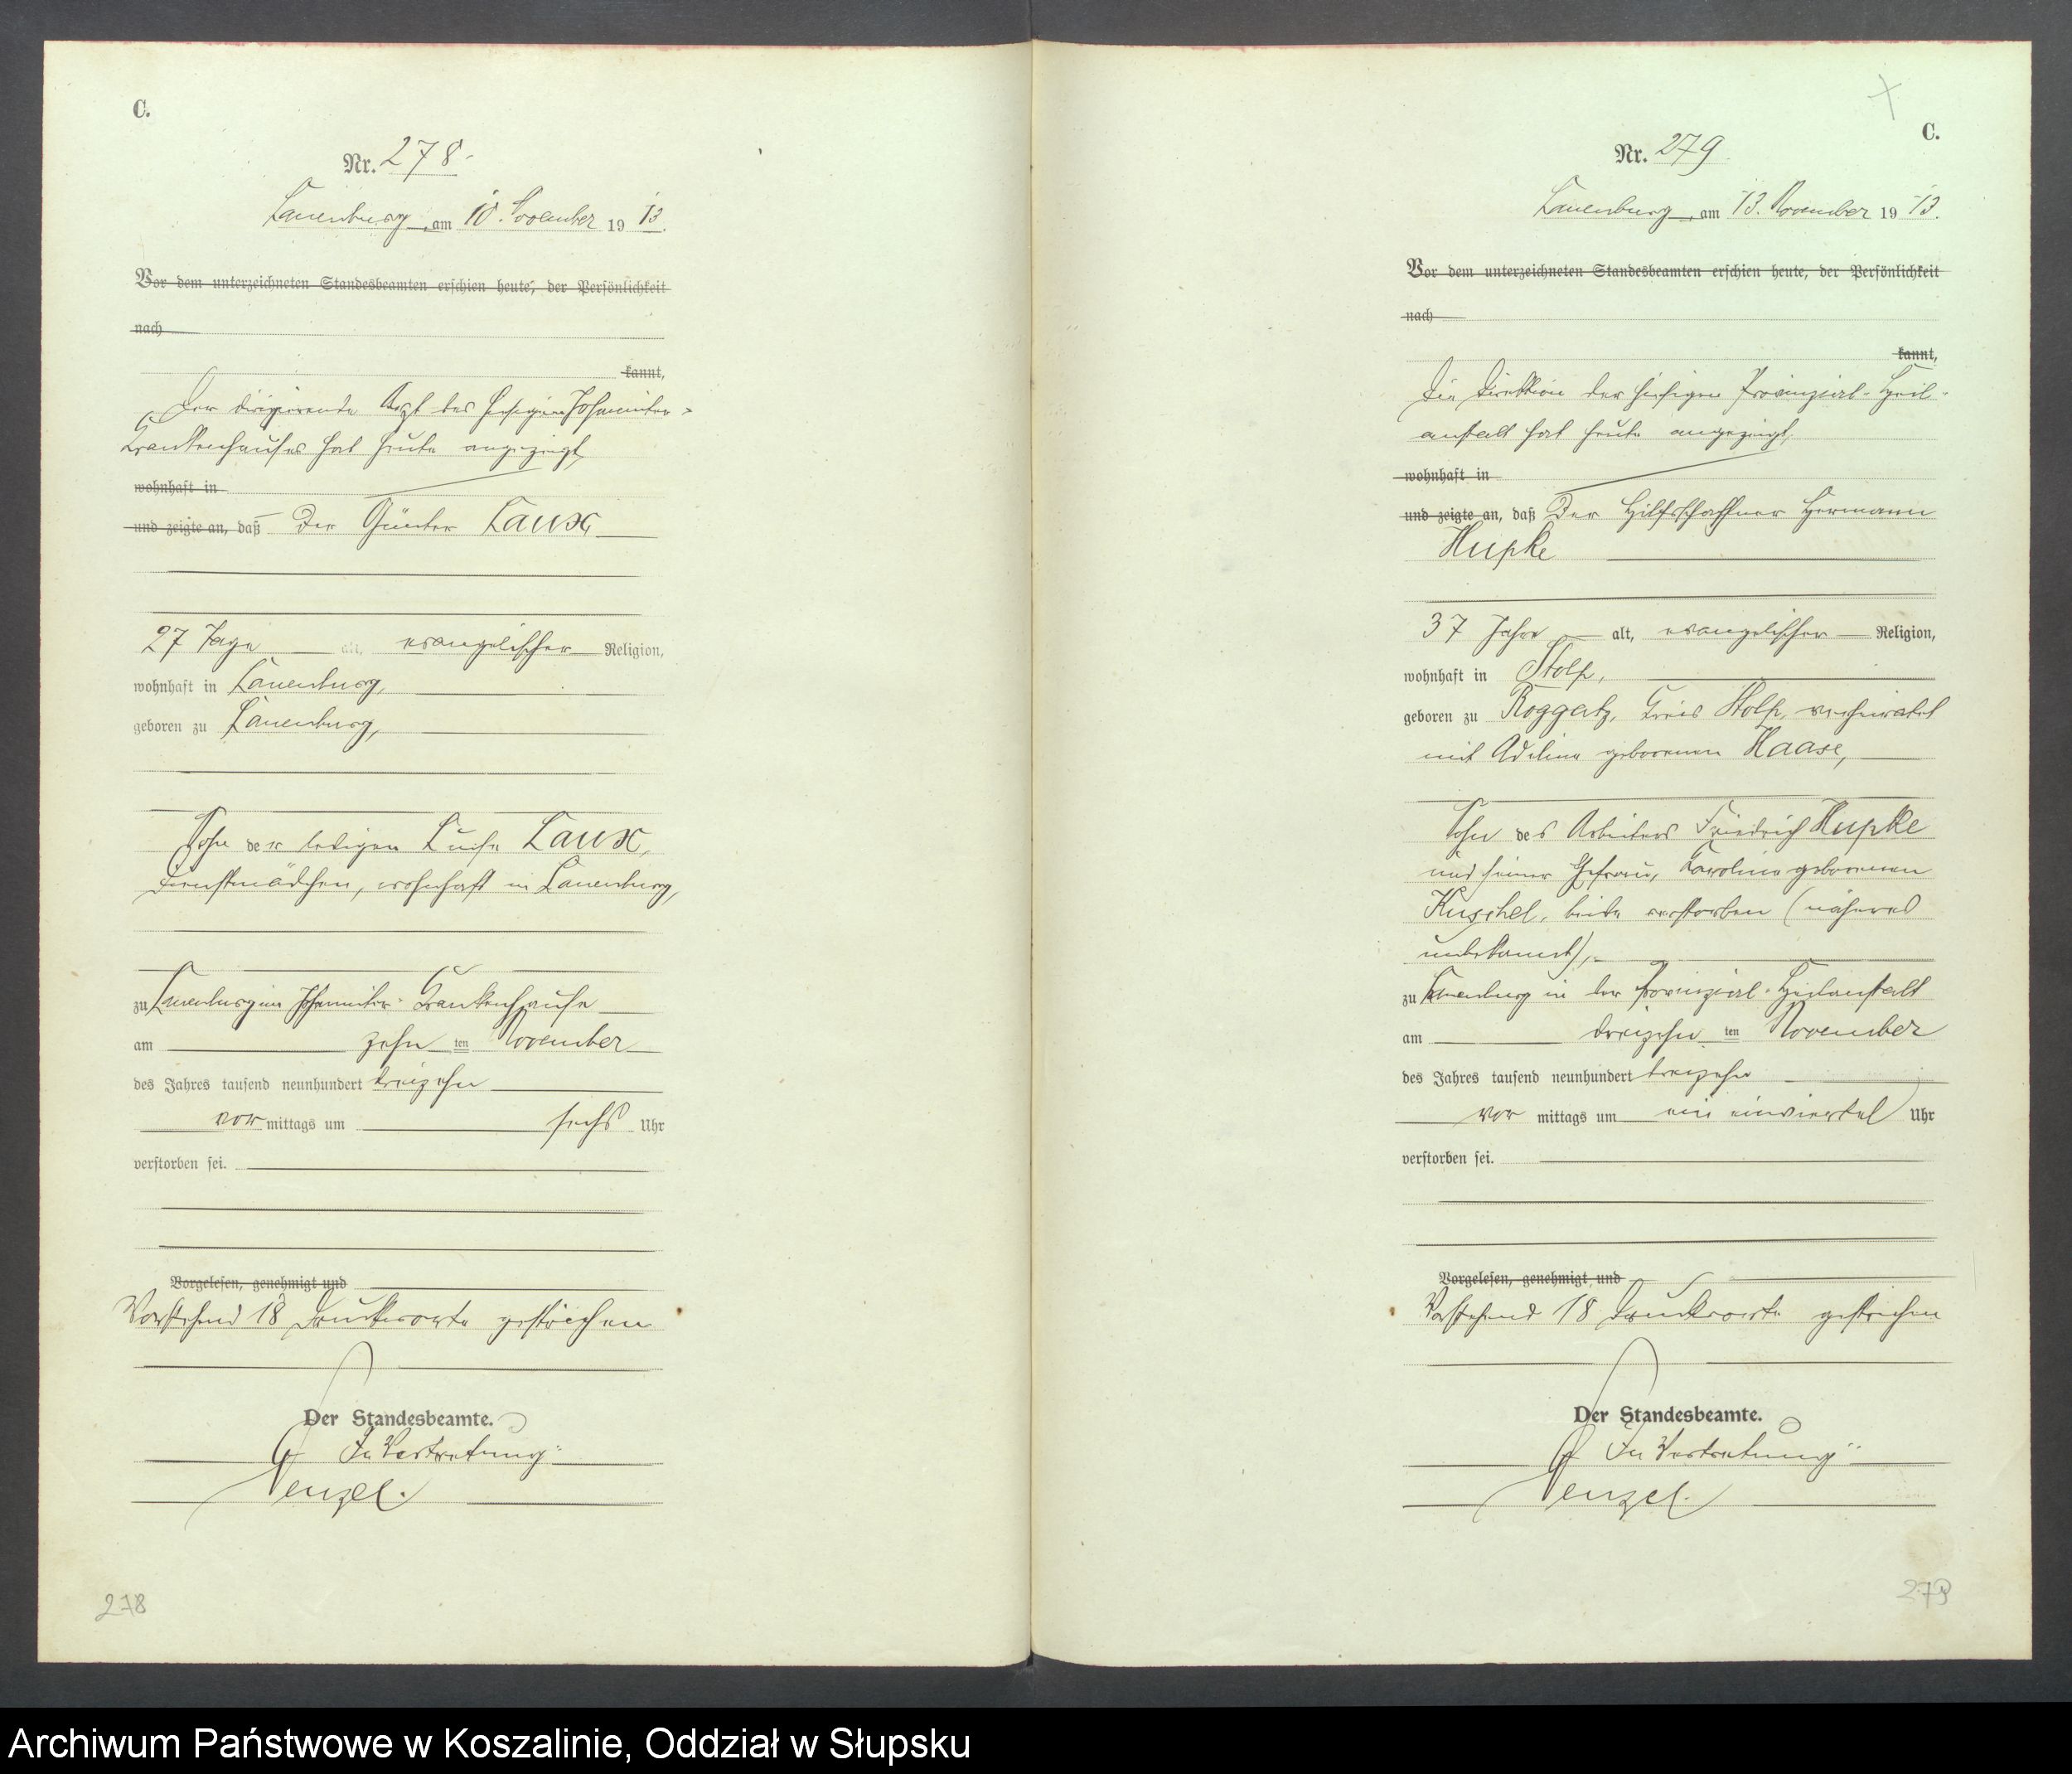 C.
Nr. 278.
Lauenburg, am 10. November 19 13.
Vor dem unterzeichneten Standesbeamten erschien heute, der Persönlichkeit
nach
kannt,
Der dirigierende Arzt des hiesigen Johanniter-
Krankenhauses hat heute angezeigt,
wohnhaft in
und zeigte an, daß der Günter Laux
27 Tage alt, evangelischer Religion,
wohnhaft in Lauenburg,
geboren zu Lauenburg,
Sohn der ledigen Luise Laux,
Dienstmädchen, wohnhaft in Lauenburg,
zu Lauenburg im Johanniter-Krankenhause
am zehn ten November
des Jahres tausend neunhundert dreizehn
vor mittags um sechs Uhr
verstorben sei.
Vorgelesen, genehmigt und
Vorstehend 18 Druckworte gestrichen
Der Standesbeamte.
In Vertretung:
Wenzel.
278
C.
Nr. 279.
Lauenburg, am 13. November 19 13.
Vor dem unterzeichneten Standesbeamten erschien heute, der Persönlichkeit
nach
kannt,
Die Direktion der hiesigen Provinzial-Heil-
anstalt hat heute angezeigt,
wohnhaft in
und zeigte an, daß der Hilfsschaffner Hermann
Hupke
37 Jahre alt, evangelischer Religion,
wohnhaft in Stolp,
geboren zu Roggatz, Kreis Stolp, verheiratet
mit Adeline geborenen Haase,
Sohn des Arbeiters Friedrich Hupke
und seiner Ehefrau, Karoline geborenen
Kuschel, beide verstorben (näheres
unbekannt),
zu Lauenburg in der Provinzial-Heilanstalt
am dreizehn ten November
des Jahres tausend neunhundert dreizehn
vor mittags um ein einviertel Uhr
verstorben sei.
Vorgelesen, genehmigt und
Vorstehend 18 Druckworte gestrichen
Der Standesbeamte.
In Vertretung:
Wenzel.
279
Archiwum Państwowe w Koszalinie, Oddział w Słupsku